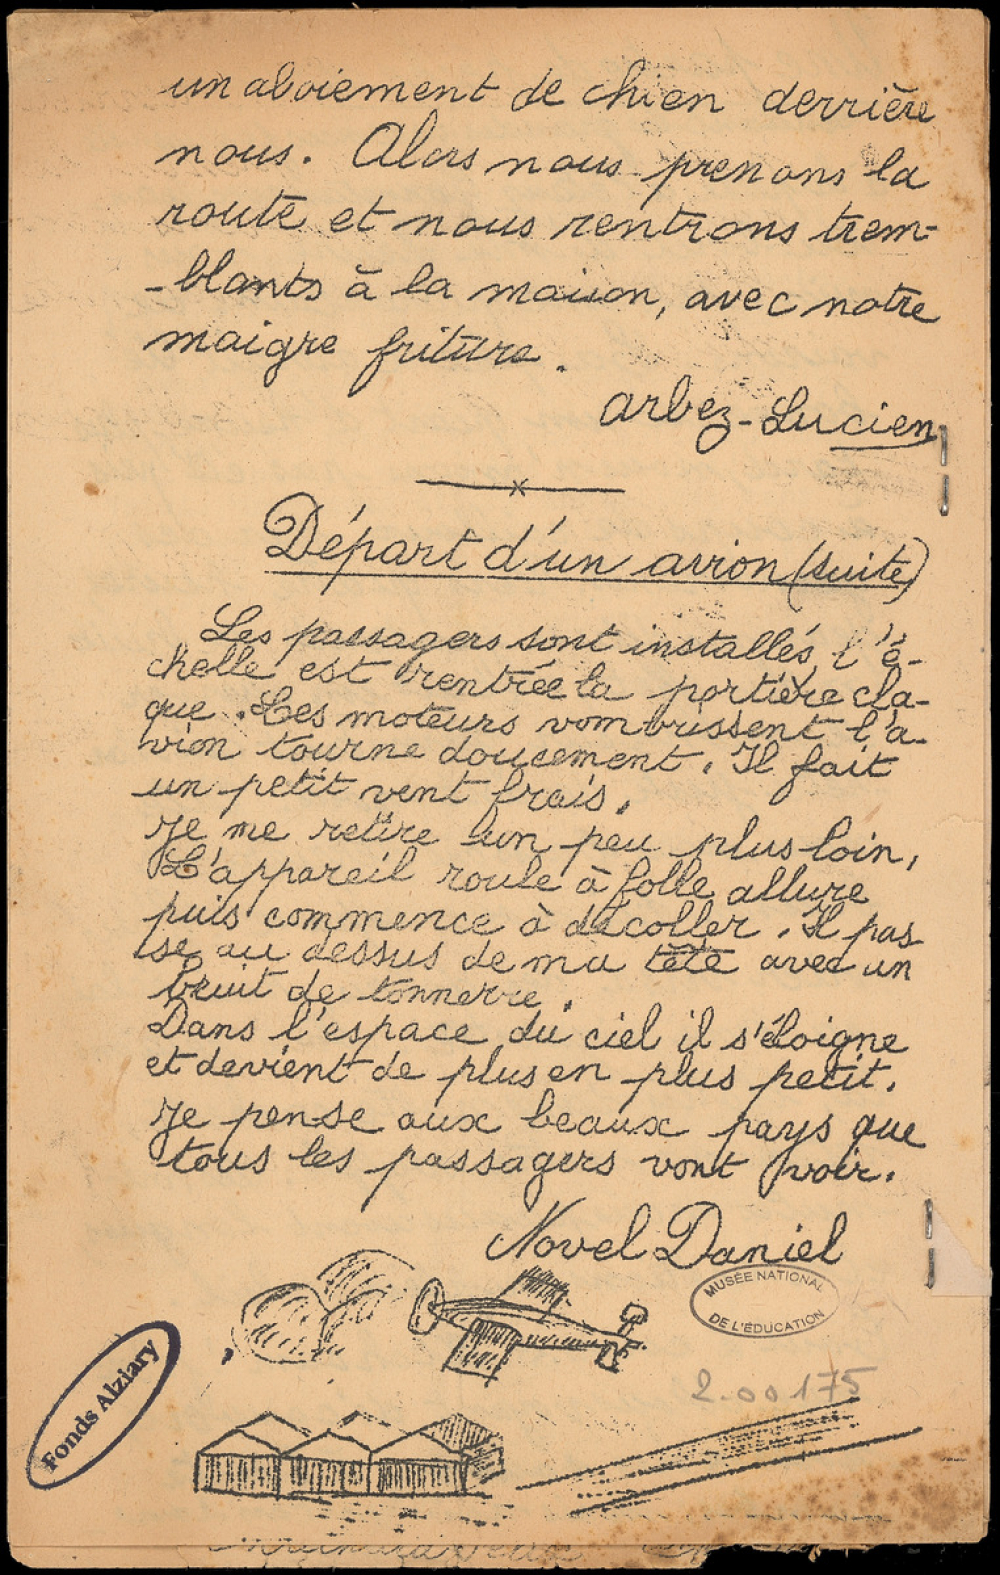 un aboiement de chien derrière
nous. Alors nous prenons la
route et nous rentrons trem-
-blants à la maison, avec notre
maigre friture.
Arbez-Lucien
Départ d'un avion (suite)
Les passagers sont installés, l'é-
chelle est rentrée la portière cla-
que. Les moteurs vombrissent l'a-
vion tourne doucement. Il fait
un petit vent frais.
Je me retire un peu plus loin,
L'appareil roule à folle allure
puis commence à décoller. Il pas
se au dessus de ma tête avec un
bruit de tonnerre.
Dans l'espace du ciel il s'éloigne
et devient de plus en plus petit.
Je pense aux beaux pays que
tous les passagers vont voir.
Novel Daniel
MUSÉE NATIONAL
DE L'ÉDUCATION
2.00175
Fonds Alziary